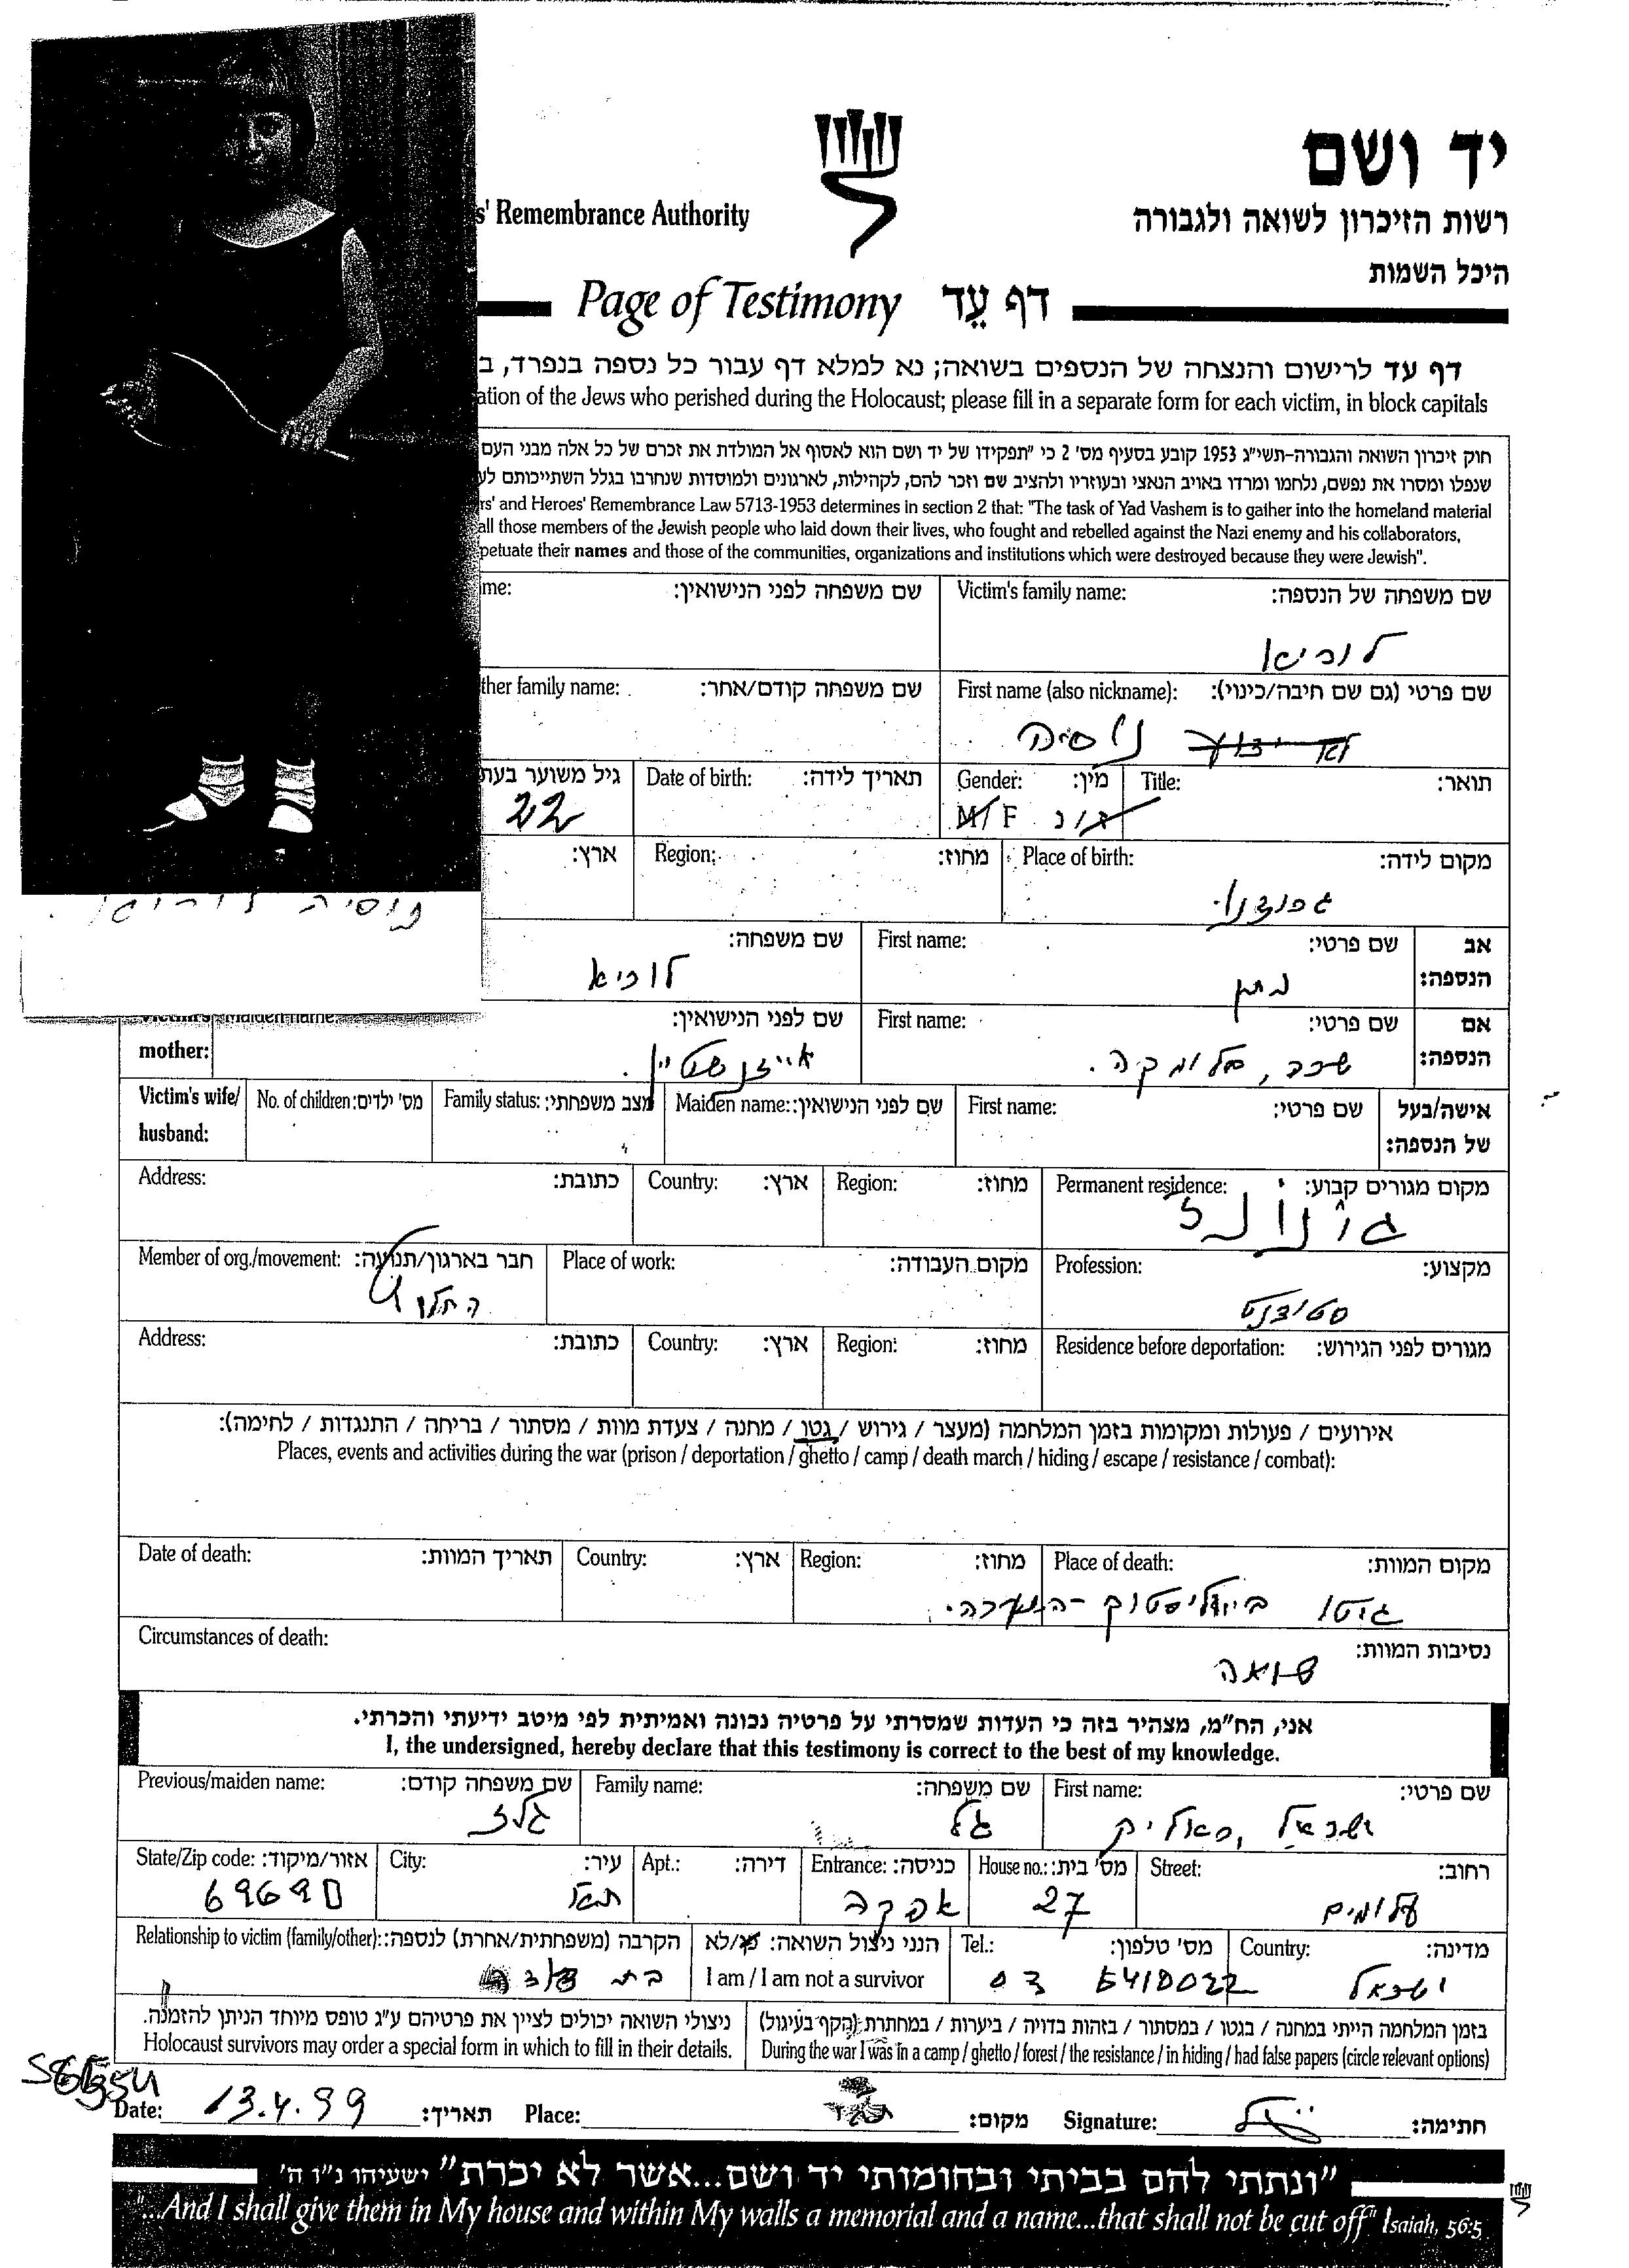 יד ושם
רשות הזיכרון לשואה ולגבורה
היכל השמות
s' Remembrance Authority
Page of Testimony דף עֵד
דף עד לרישום והנצחה של הנספים בשואה; נא למלא דף עבור כל נספה בנפרד, ב
ation of the Jews who perished during the Holocaust; please fill in a separate form for each victim, in block capitals
חוק זיכרון השואה והגבורה–תשי"ג 1953 קובע בסעיף מס' 2 כי "תפקידו של יד ושם הוא לאסוף אל המולדת את זכרם של כל אלה מבני העם
שנפלו ומסרו את נפשם, נלחמו ומרדו באויב הנאצי ובעוזריו ולהציב שם וזכר להם, לקהילות, לארגונים ולמוסדות שנחרבו בגלל השתייכותם לע
rs' and Heroes' Remembrance Law 5713-1953 determines in section 2 that: "The task of Yad Vashem is to gather into the homeland material
all those members of the Jewish people who laid down their lives, who fought and rebelled against the Nazi enemy and his collaborators,
petuate their names and those of the communities, organizations and institutions which were destroyed because they were Jewish".
שם משפחה של הנספה: Victim's family name: שם משפחה לפני הנישואין: me:
לוריא
שם פרטי (גם שם חיבה/כינוי): First name (also nickname): שם משפחה קודם/אחר: ther family name:
ניוסיה
תואר: Title: מין: Gender: תאריך לידה: Date of birth: גיל משוער בעת
M/F 22
מקום לידה: Place of birth: מחוז: Region: ארץ:
גרודנו
נוסיה לוריא
אב הנספה: שם פרטי: First name: שם משפחה:
נתן לוריא
אם הנספה: שם פרטי: First name: שם לפני הנישואין: Victim's maiden name: mother:
שרה, אייזנשטיין
אישה/בעל של הנספה: שם פרטי: First name: שם לפני הנישואין: Maiden name: מצב משפחתי: Family status: מס' ילדים: No. of children: Victim's wife/ husband:
מקום מגורים קבוע: Permanent residence: מחוז: Region: ארץ: Country: כתובת: Address:
מקצוע: Profession: מקום העבודה: Place of work: חבר בארגון/תנועה: Member of org./movement:
סטודנט החלוץ
מגורים לפני הגירוש: Residence before deportation: מחוז: Region: ארץ: Country: כתובת: Address:
אירועים / פעולות ומקומות בזמן המלחמה (מעצר / גירוש / גטו / מחנה / צעדת מוות / מסתור / בריחה / התנגדות / לחימה):
Places, events and activities during the war (prison / deportation / ghetto / camp / death march / hiding / escape / resistance / combat):
מקום המוות: Place of death: מחוז: Region: ארץ: Country: תאריך המוות: Date of death:
גיטו ביאליסטוק
נסיבות המוות: Circumstances of death:
שואה
אני, הח"מ, מצהיר בזה כי העדות שמסרתי על פרטיה נכונה ואמיתית לפי מיטב ידיעתי והכרתי.
I, the undersigned, hereby declare that this testimony is correct to the best of my knowledge.
שם פרטי: First name: שם משפחה: Family name: שם משפחה קודם: Previous/maiden name:
ישראל, גל
רחוב: Street: מס' בית: House no.: כניסה: Entrance: דירה: Apt.: עיר: City: אזור/מיקוד: State/Zip code:
עלומים 27 אפקה תא 69690
מדינה: Country: מס' טלפון: Tel.: הנני ניצול השואה: כן/לא הקרבה (משפחתית/אחרת) לנספה: Relationship to victim (family/other):
I am / I am not a survivor
ישראל 6410022 03 בת דודה
בזמן המלחמה הייתי במחנה / בגטו / במסתור / בזהות בדויה / ביערות / במחתרת (הקף בעיגול) ניצולי השואה יכולים לציין את פרטיהם ע"ג טופס מיוחד הניתן להזמנה.
During the war I was in a camp / ghetto / forest / the resistance / in hiding / had false papers (circle relevant options) Holocaust survivors may order a special form in which to fill in their details.
חתימה: Signature: מקום: Place: תאריך: 13.4.99 Date:
"ונתתי להם בביתי ובחומותי יד ושם...אשר לא יכרת" ישעיהו נ"ו ה'
"...And I shall give them in My house and within My walls a memorial and a name...that shall not be cut off" Isaiah, 56:5